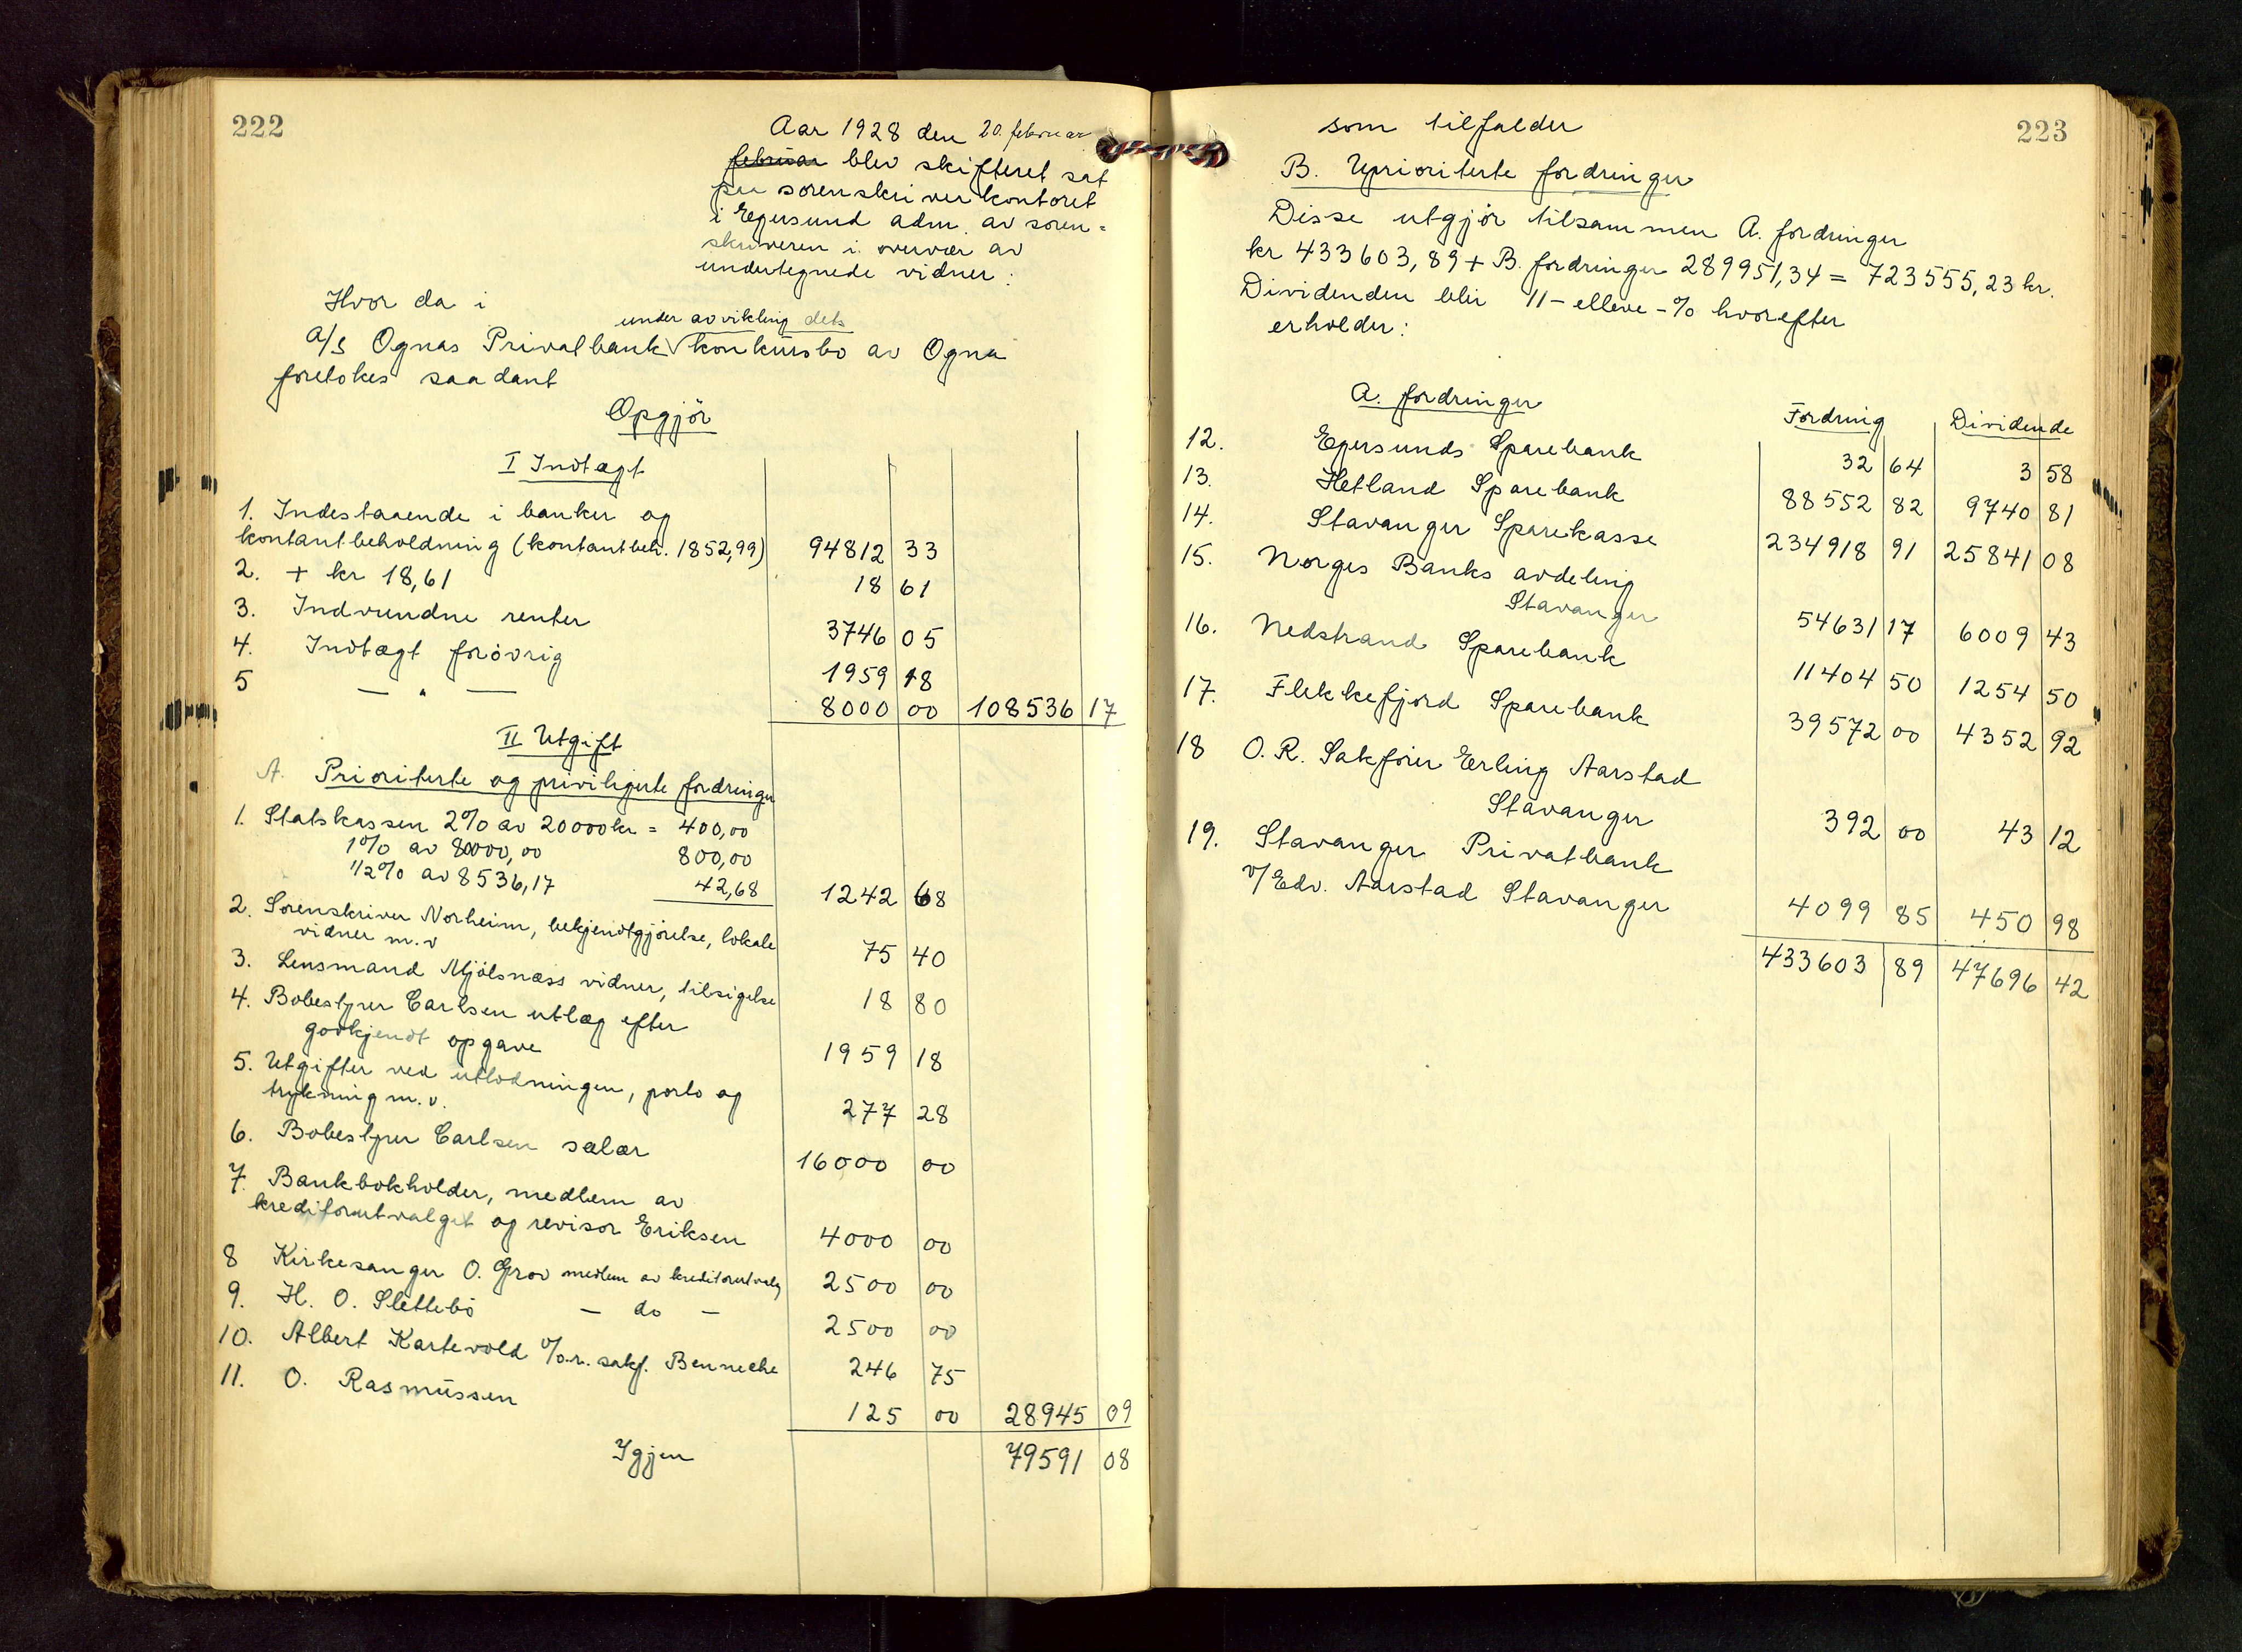 222
Aar 1928 den 20. februar
februar blev skifteret sat
paa sorenskriverkontoret
i Egersund adm. av soren=
skriveren i overvær av
undertegnede vidner:
Hvor da i
under avvikling dets
A/S Ognas Privatbank √ konkursbo av Ogna
foretokes saadant
Opgjør
I Indtægt
1. Indestaaende i banker og
kontantbeholdning (kontantbeh. 1852,99) 94812 33
2. + kr 18,61 18 61
3. Indvundne renter 3746 05
4. Indtægt forøvrig 1959 18
5 — " — 8000 00 108536 17
II Utgift
A. Prioriterte og priviligerte fordringer
1. Statskassen 2% av 20000 kr = 400,00
1% av 80000,00 800,00
1/2% av 8536,17 42,68 1242 68
2. Sorenskriver Norheim, bekjendtgjørelse, lokale
vidner m.v 75 40
3. Lensmand Mjølsnæss vidner, tilsigelse 18 80
4. Bobestyrer Carlsen utlæg efter
godkjendt opgave 1959 18
5. Utgifter ved utlodningen, porto og
trykning m.v. 277 28
6. Bobestyrer Carlsen salær 16000 00
7. Bankbokholder, medlem av
kreditorutvalget og revisor Eriksen 4000 00
8 Kirkesanger O. Grov medlem av kreditorutvalg 2500 00
9. H. O. Slettebø — do — 2500 00
10. Albert Kartevold v/o.r. sakf. Benneche 246 75
11. O. Rasmussen 125 00 28945 09
Igjen 79591 08
223
som tilfalder
B. Uprioriterte fordringer
Disse utgjør tilsammen A. fordringer
kr 433603,89 + B. fordringer 289951,34 = 723555,23 kr.
Dividenden blir 11 - elleve - % hvorefter
erholder:
A. fordringer Fordring Dividende
12. Egersunds Sparebank 32 64 3 58
13. Hetland Sparebank 88552 82 9740 81
14. Stavanger Sparekasse 234918 91 25841 08
15. Norges Banks avdeling
Stavanger 54631 17 6009 43
16. Nedstrand Sparebank 11404 50 1254 50
17. Flekkefjord Sparebank 39572 00 4352 92
18 O.R. Sakfører Erling Aarstad
Stavanger 392 00 43 12
19. Stavanger Privatbank
v/ Edv. Aarstad Stavanger 4099 85 450 98
433603 89 47696 42